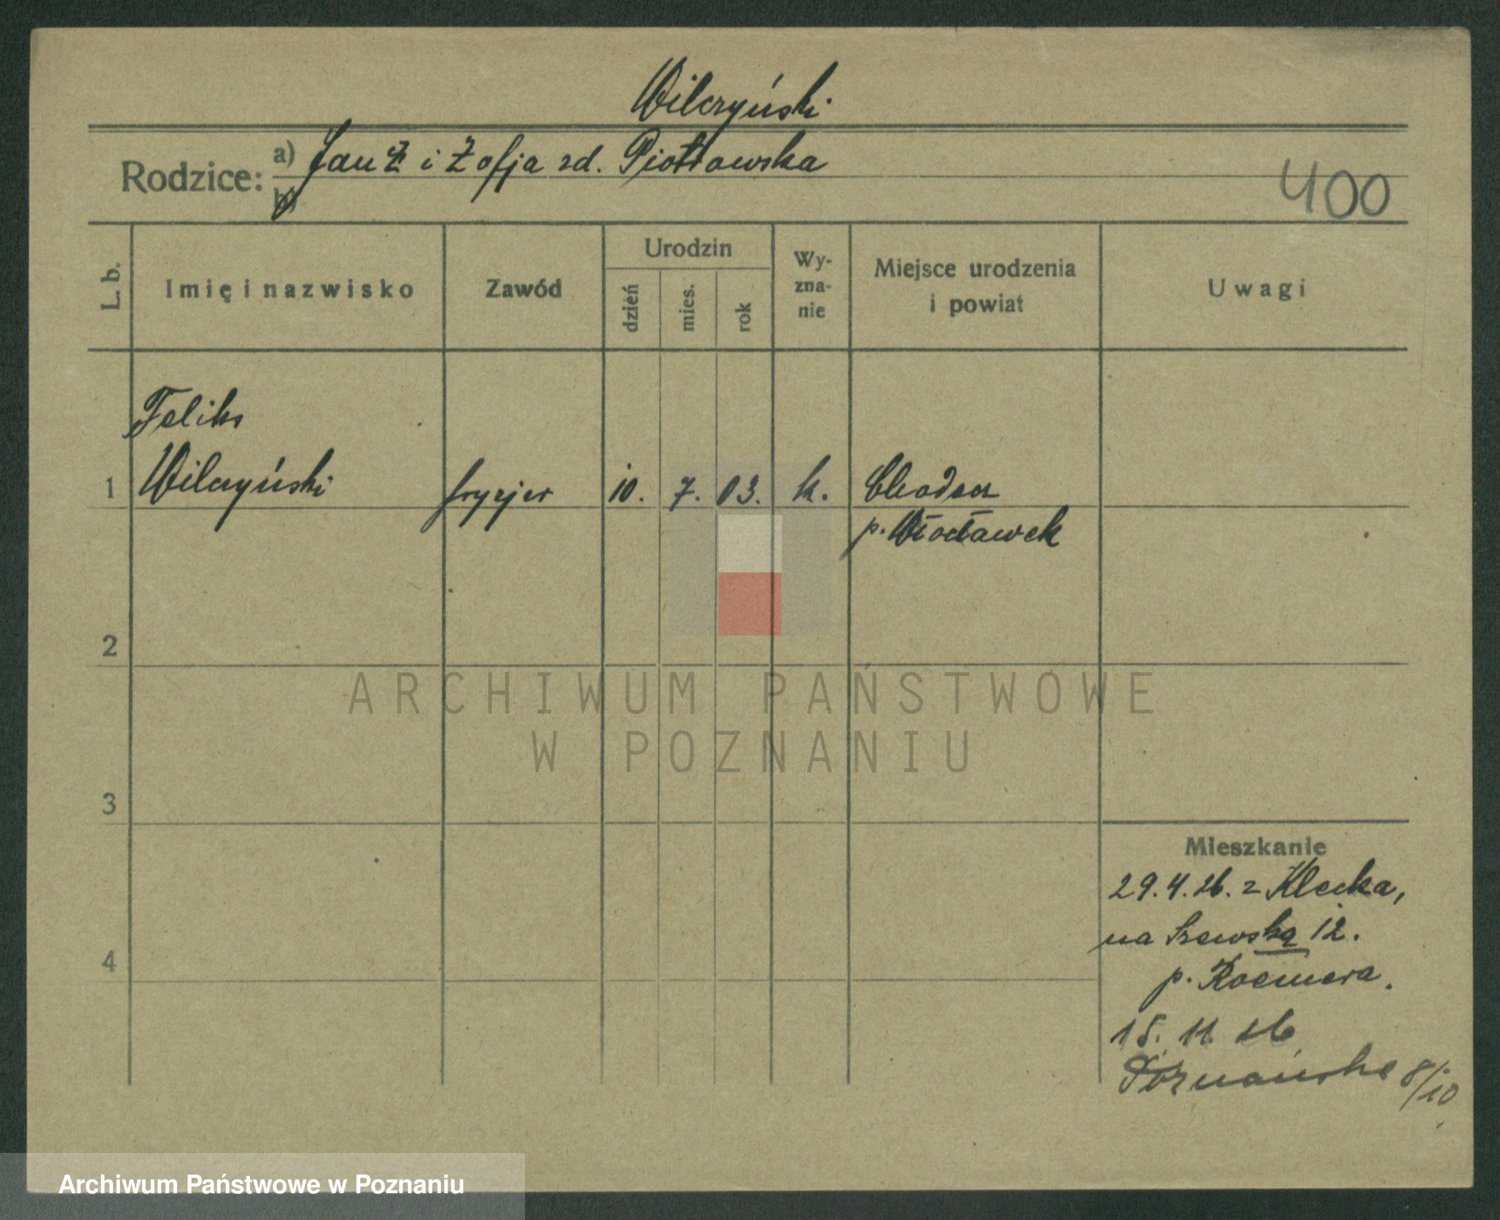 Wilczyński
Rodzice: a) Jan i Zofja zd. Piotrowska
b)
400
L. b. Imię i nazwisko Zawód Urodzin dzień mies. rok Wy-zna-nie Miejsce urodzenia i powiat Uwagi
Feliks
1 Wilczyński fryzjer 10. 7. 03. k. Chodecz
p. Włocławek
2
ARCHIWUM PAŃSTWOWE
W POZNANIU
3
Mieszkanie
29.4.26. z Klecka,
na Szewską 12.
4
p. Roemera.
15. 11. 26
Poznańska 8/10
Archiwum Państwowe w Poznaniu